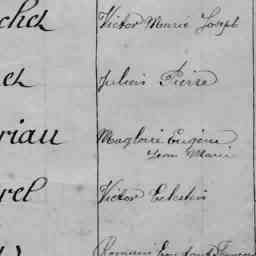 chet Victor Marie Joseph
et Julien Pierre
riau Magloire Eugène
Jean Marie
rel Victor Celestin